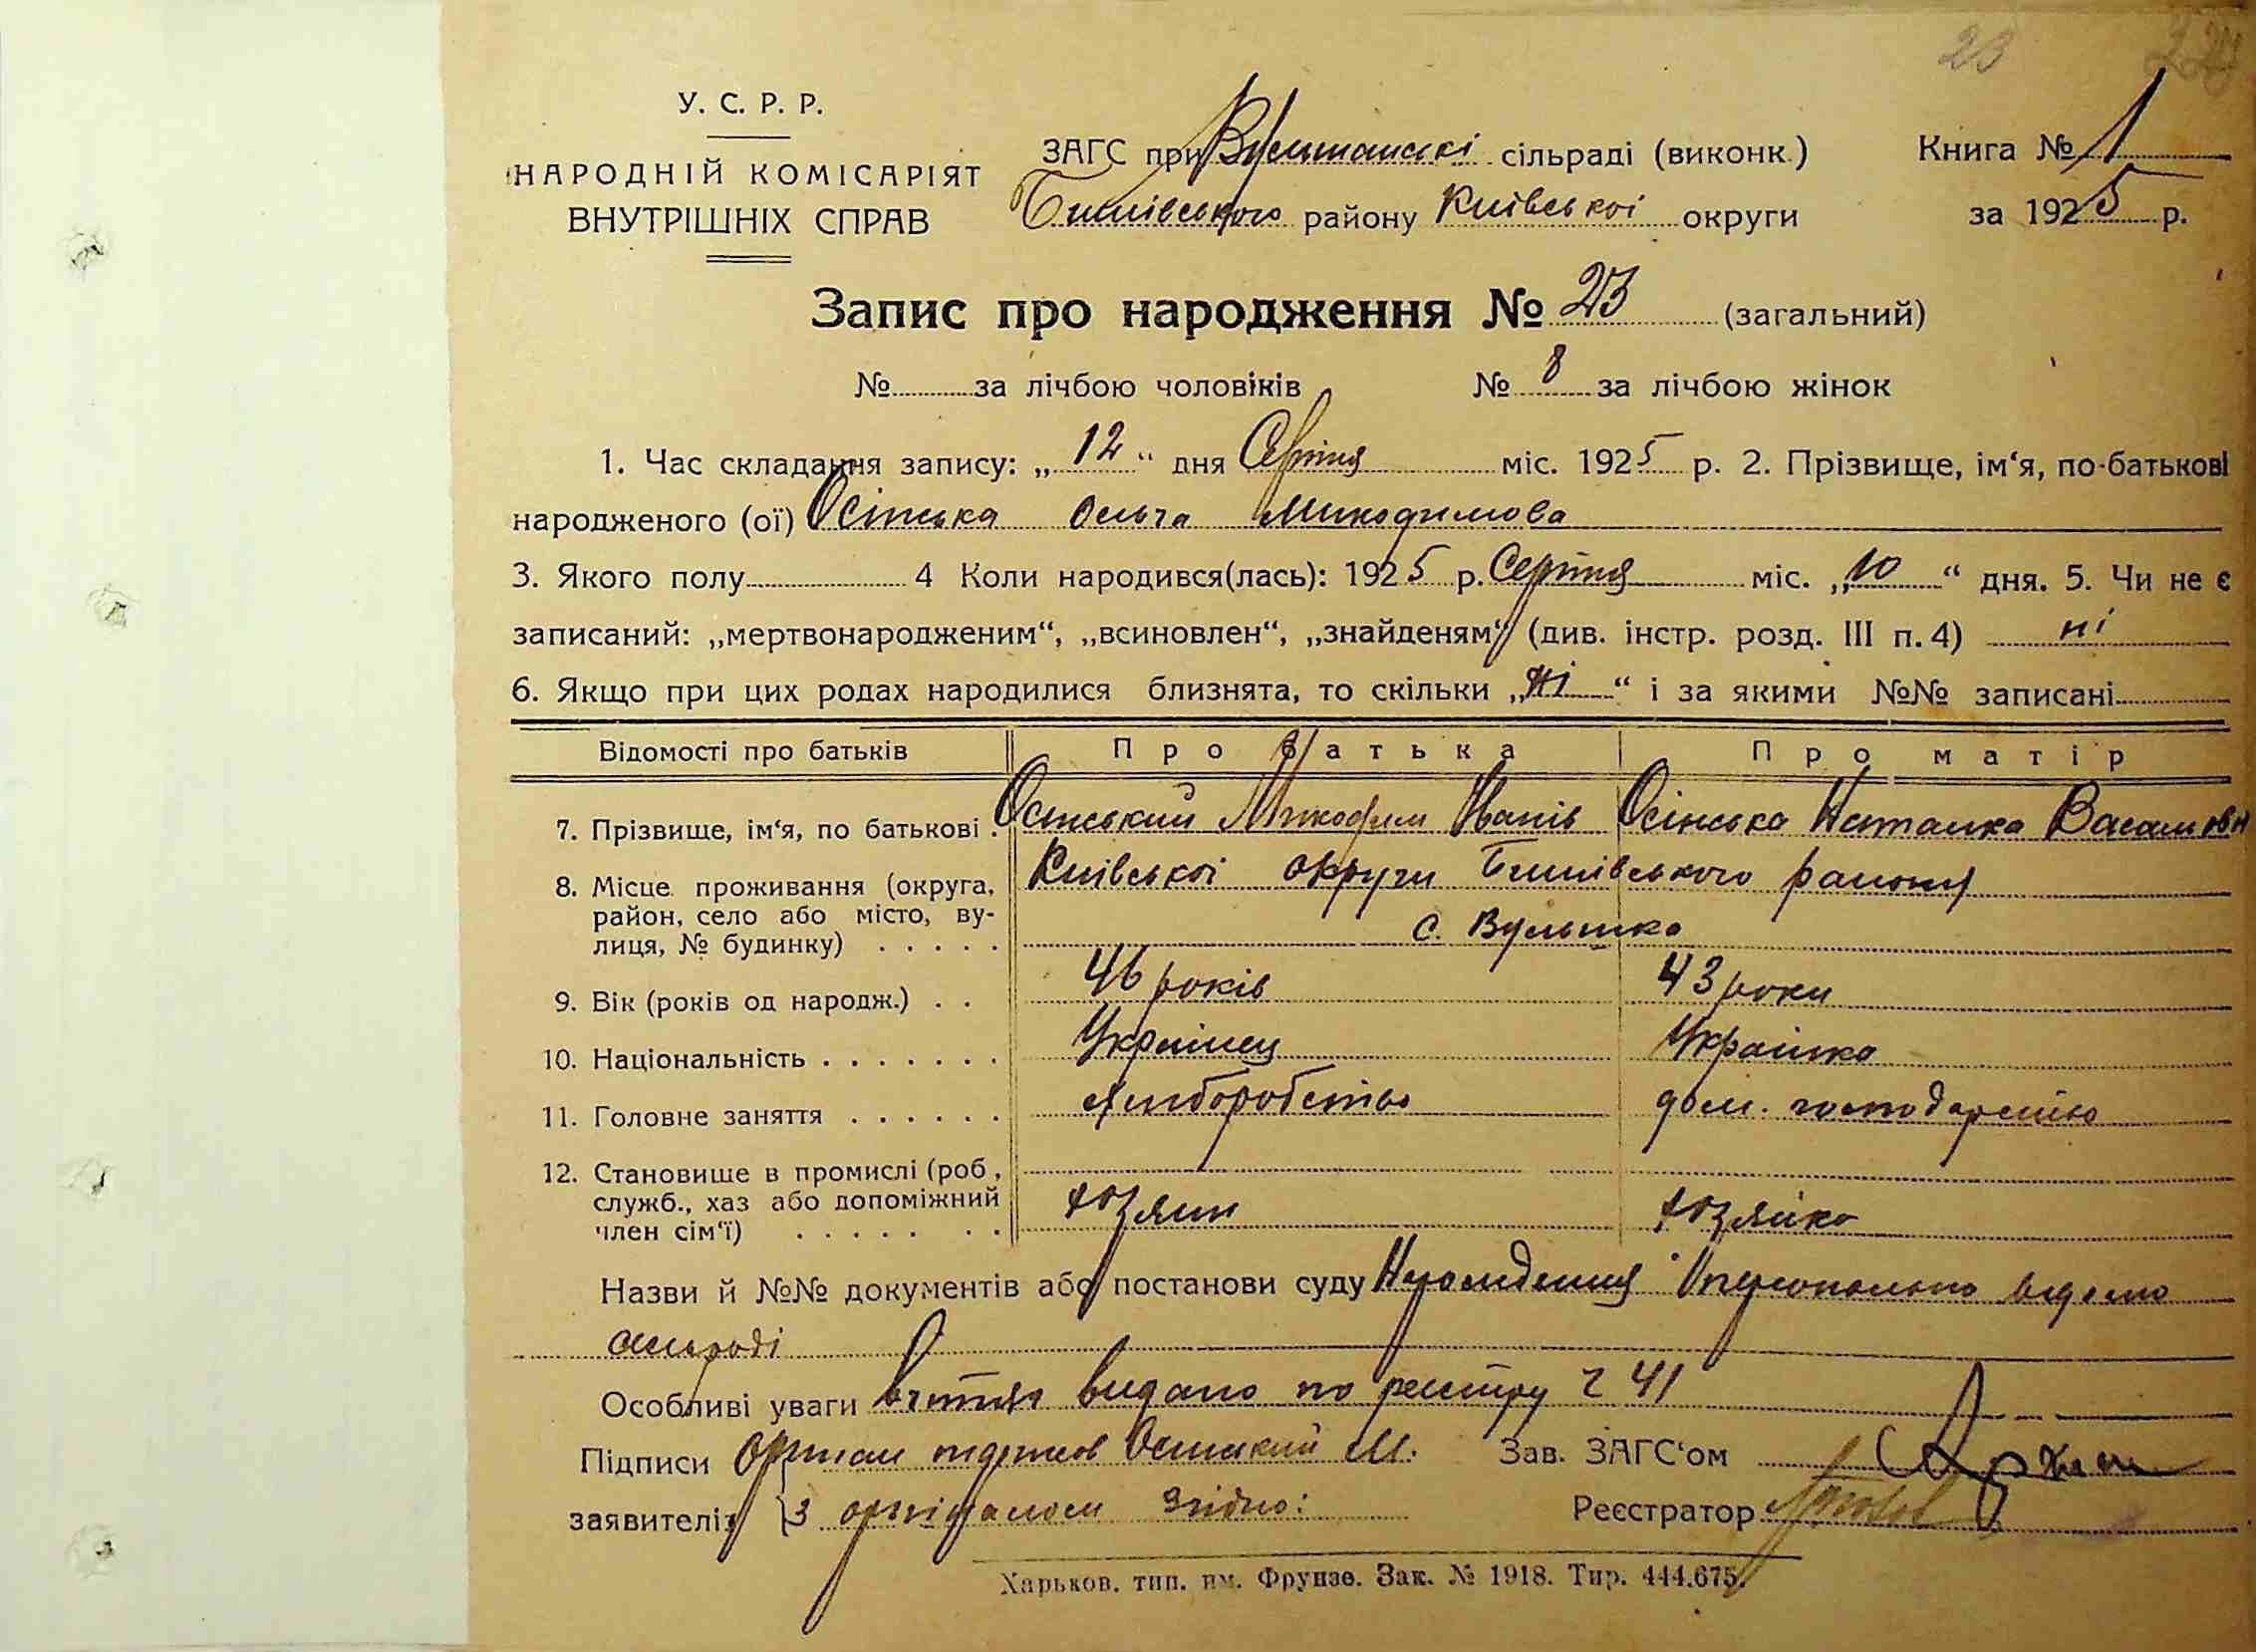 23
У. С. Р. Р.
НАРОДНІЙ КОМІСАРІЯТ
ВНУТРІШНІХ СПРАВ
ЗАГС при сільраді (виконк.)
району Київської округи
Книга № 1
за 1925 р.
Запис про народження № 23 (загальний)
№ за лічбою чоловіків № 8 за лічбою жінок
1. Час складання запису: „12“ дня Серпня міс. 1925 р. 2. Прізвище, ім‘я, по-батькові
народженого (ої) Осінська Ольга Микодимова
3. Якого полу 4 Коли народився(лась): 1925 р. Серпня міс. „10“ дня. 5. Чи не є
записаний: „мертвонародженим“, „всиновлен“, „знайденям“ (див. інстр. розд. III п. 4) ні
6. Якщо при цих родах народилися близнята, то скільки „ні“ і за якими №№ записані
Відомості про батьків Про батька Про матір
7. Прізвище, ім‘я, по батькові Осінський Микодим Іванів Осінська Наталка
8. Місце проживання (округа, Київської округи району
район, село або місто, ву-
лиця, № будинку) с. Вульшка
9. Вік (років од народж.) 46 років 43 роки
10. Національність Українец Українка
11. Головне заняття Хліборобство дом. господарство
12. Становище в промислі (роб.,
служб., хаз або допоміжний
член сім‘ї) хозяин хозяйка
Назви й №№ документів або постанови суду Народження персонально відомо
сільраді
Особливі уваги витяг видано по реєстру 41
Підписи Осінський М. Зав. ЗАГС‘ом
заявителів з оригіналом згідно: Реєстратор
Харьков. тип. им. Фрунзе. Зак. № 1918. Тир. 444.675.